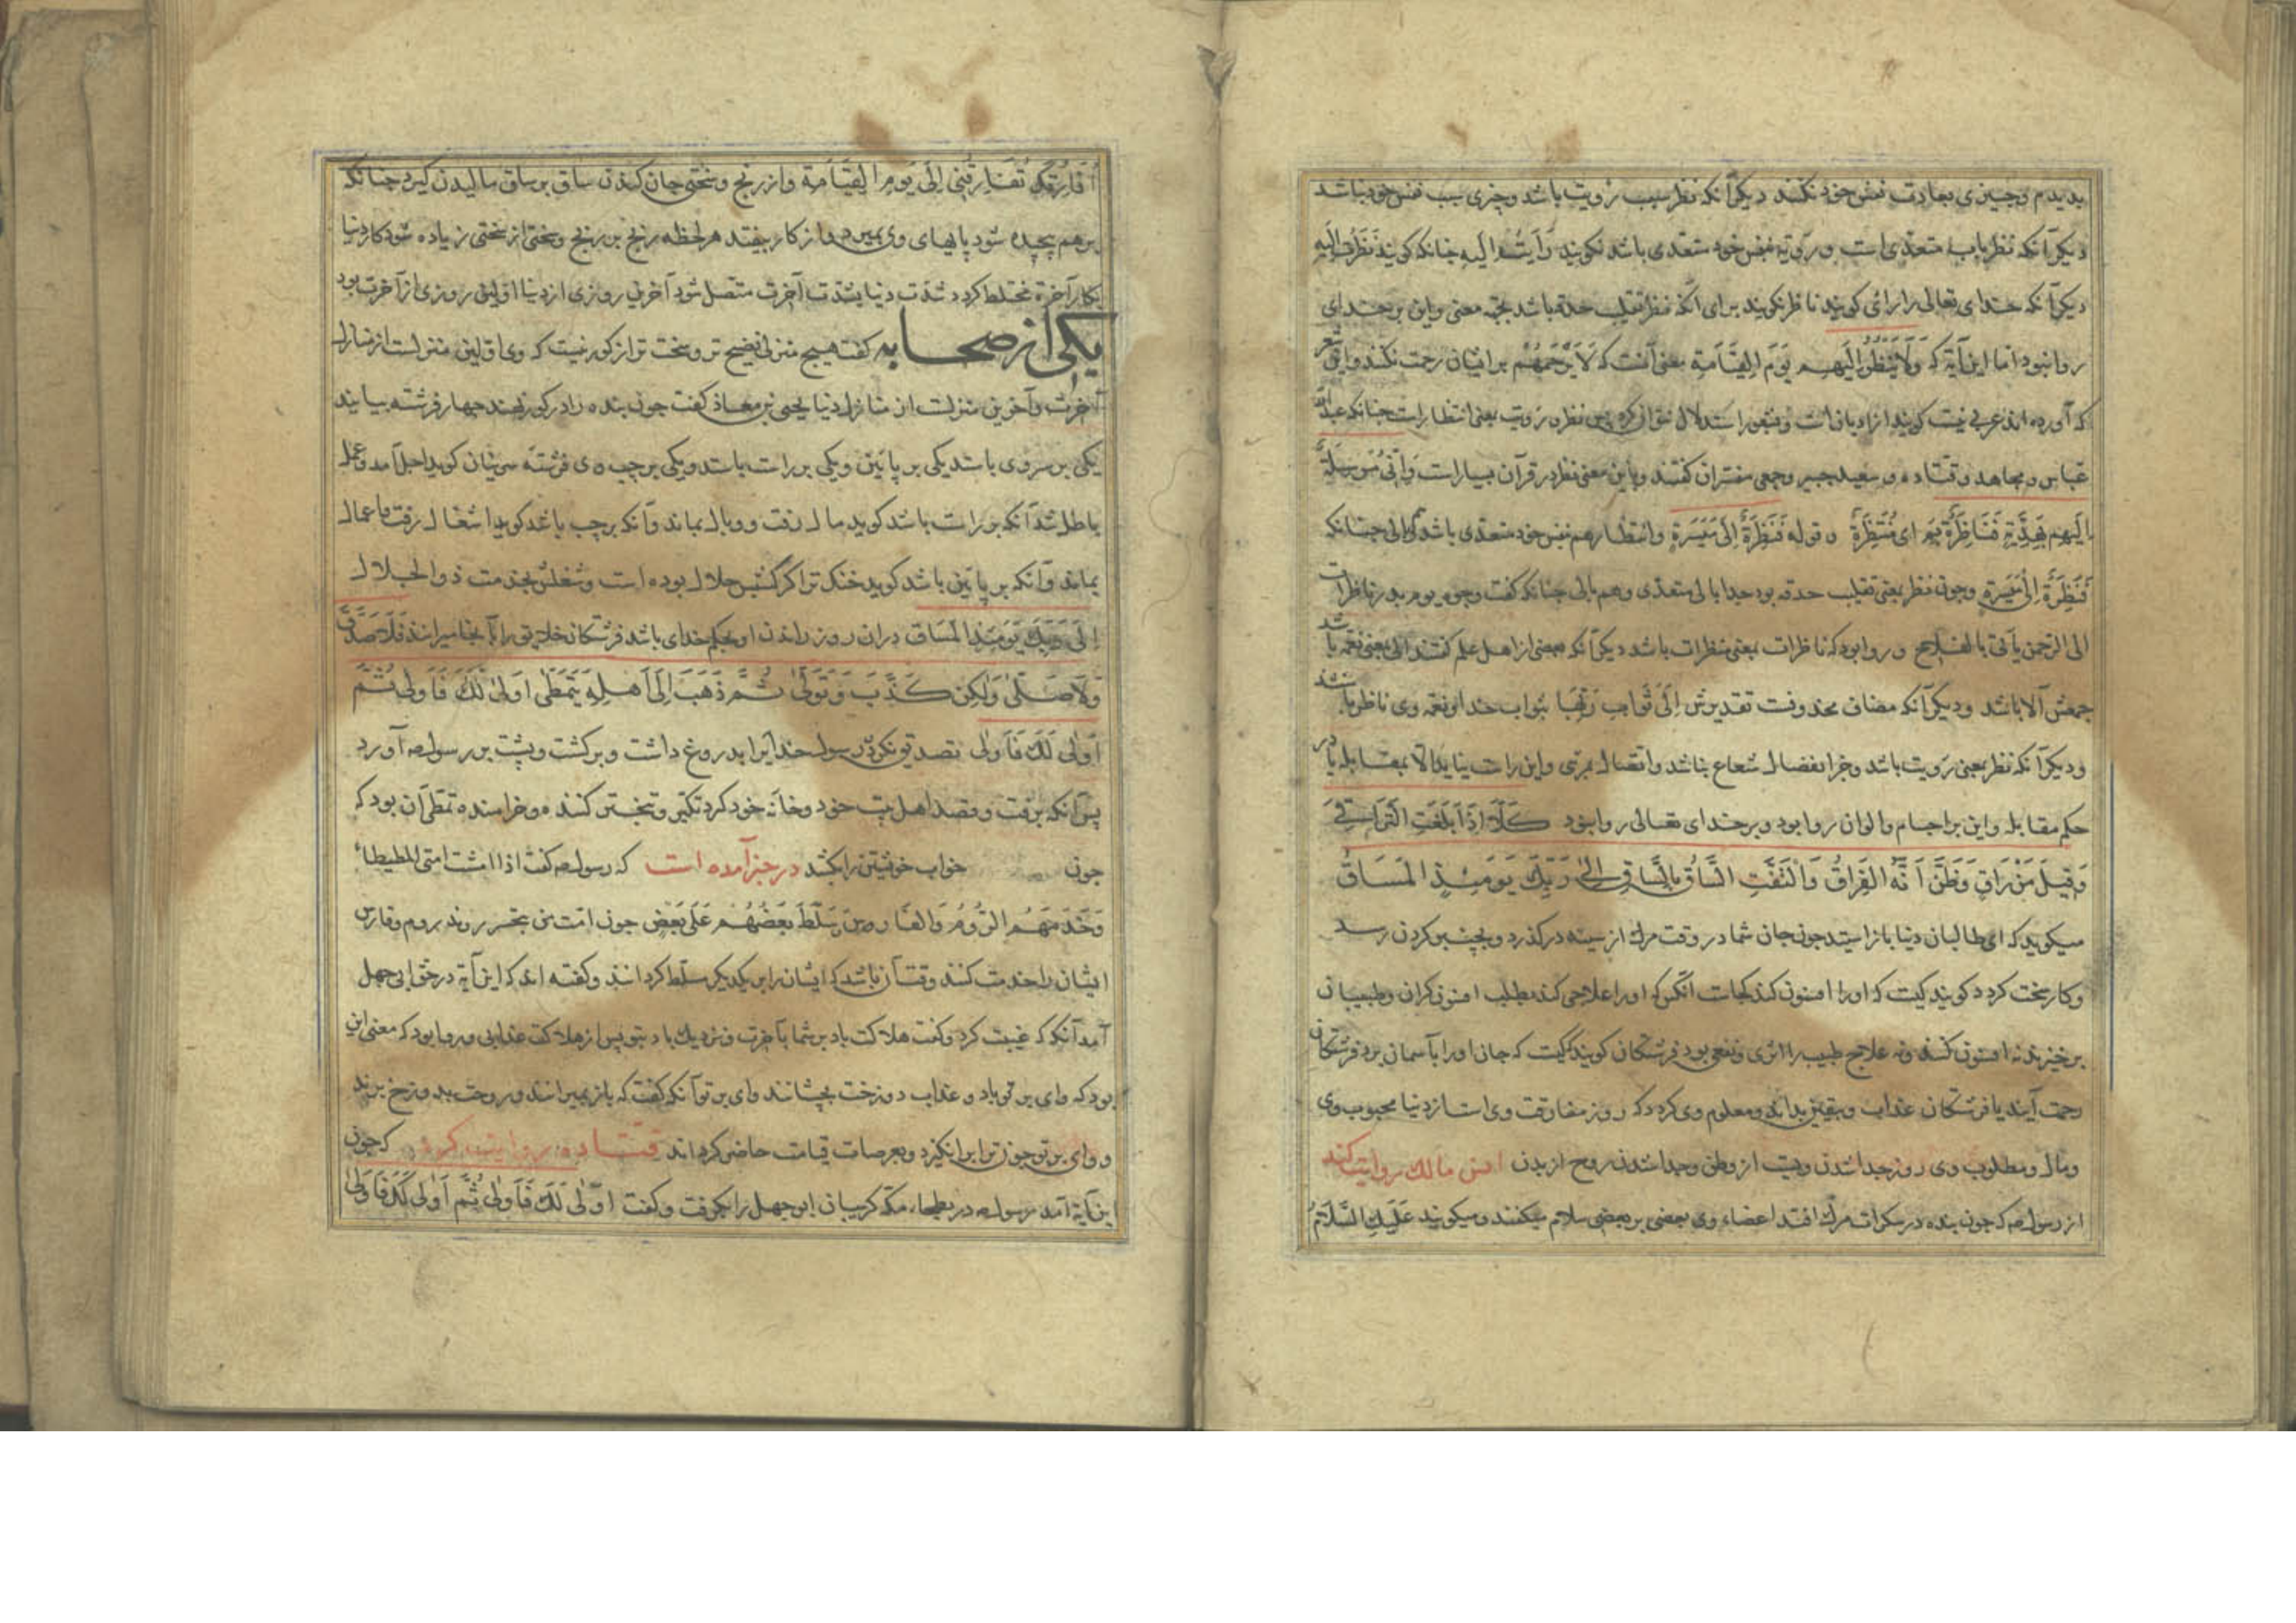 بدیدم و چیزی بعبادت نفس خود نکنند دیگر آنکه نظر سبب رؤیت باشد و چیزی سبب نفس خود نباشد
دیگر آنکه نظر باب متعدی است و رؤیة بنفس خود متعدی باشد نگویند رَأَیتُ الیه چنانکه گویند نَظَرتُ الیه
دیگر آنکه خدای تعالی را رائی گویند ناظر نگویند برای آنکه نظر تقلیب حدقه باشد بجهة معنی و این بر خدای
روا نبود اما این آیة که وَلَا یَنظُرُ اِلَیهِم یَومَ القِیَامَةِ معنی آنست که لَا یَرحَمُهُم بر ایشان رحمت نکند و این شعر
که آورده اند عربی نیست گویند از بادیانست و بشعر استدلال نتوان کرد پس نظر نه رؤیت بمعنی انتظار است چنانکه عبدالله
عباس و مجاهد و قتاده و سعید جبیر و جمعی مفسران گفتند و باین معنی نظر در قرآن بسیار است وَاِنّی مُرسِلَةٌ
اِلَیهِم بِهَدِیَّةٍ فَنَاظِرَةٌ بِمَ ای مُنتَظِرَةٌ و قوله فَنَظِرَةٌ اِلَی مَیسَرَةٍ و انتظار هم بنفس خود متعدی باشد و هم بالی چنانکه
فَنَظِرَةٌ اِلَی مَیسَرَةٍ و چون نظر بمعنی تقلیب حدقه بود جدا بالی متعدی و هم بالی چنانکه گفت وجوه یوم بدر ناظرات
الی الرحمن یأتی بالفلاح و روا بود که ناظرات بمعنی منتظرات باشد دیگر آنکه بعضی از اهل علم گفتند الی بمعنی نعمة باشد
جمعش آلا باشد و دیگر آنکه مضاف محذوفست تقدیرش اِلَی ثَوَابِ رَبِّهَا بثواب خدا و نعمة وی ناظر باشند
و دیگر آنکه نظر بمعنی رؤیت باشد و جز انفصال شعاع نباشد و اتصال بمرئی و این راست نیاید الا بمقابله یا در
حکم مقابله و این بر اجسام و الوان روا بود و بر خدای تعالی روا نبود کَلَّا اِذَا بَلَغَتِ التَّرَاقِیَ
وَ قِیلَ مَن رَاقٍ وَظَنَّ اَنَّهُ الفِرَاقُ وَالتَفَّتِ السَّاقُ بِالسَّاقِ اِلَی رَبِّكَ یَومَئِذٍ المَسَاقُ
میگوید که ای طالبان دنیا باز ایستید چون جان شما در وقت مرگ از سینه در گذرد و بچنبر گردن رسد
و کار سخت گردد گویند کیست که او را افسون کند کجاست آنکس که او را علاجی کند بطلب افسون گران و طبیبان
برخیزند نه افسون کننده و نه علاج طبیب را اثری و نفعی بود فرشتگان گویند کیست که جان او را بآسمان برد فرشتگان
رحمت آیند یا فرشتگان عذاب و بیقین بداند و معلوم وی گردد که روز مفارقت وی است از دنیا محبوب وی
و مال و مطلوب وی روز جدا شدن ویست از وطن و جدا شدن روح از بدن انس مالك روایت کند
از رسول ص که چون بنده در سکرات مرگ افتد اعضاء وی بعضی بر بعضی سلام میکنند و میگویند عَلَیكَ السَّلَامُ
اُفَارِقُكَ تُفَارِقُنِی اِلَی یَومِ القِیَامَةِ و از رنج و سختی جان کندن ساق بر ساق مالیدن گیرد چنانکه
بر هم پیچیده شود پایهای وی بمیرد و از کار بیفتد هر لحظه رنج بر رنج و سختی از سختی زیاده شود کار دنیا
بکار آخرة مختلط گردد شدت دنیا بشدت آخرت متصل شود آخرین روزی از دنیا اولین روزی از آخرت بود
یکی از صحابه گفت هیچ منزلی فضیح تر و سخت تر از گور نیست که وی اولین منزلست از منازل
آخرت و آخرین منزلست از منازل دنیا یحیی بن معاذ گفت چون بنده را در گور نهند چهار فرشته بیایند
یکی بر سر وی باشد یکی بر پایین و یکی بر راست باشد و یکی بر چپ وی فرشته سر ایشان گوید اجل آمد و عمل
باطل شد آنکه بر راست باشد گوید مال رفت و وبال بماند و آنکه بر چپ باشد گوید اشغال رفت و اعمال
بماند و آنکه بر پایین باشد گوید خنك ترا اگر کسب حلال بوده است و شغلش بخدمت ذو الجلال
اِلَی رَبِّكَ یَومَئِذٍ المَسَاق در آن روز راندن او بحکم خدای باشد فرشتگان خلایق را بآنجا میرانند فَلَا صَدَّقَ
وَلَا صَلَّی وَلَکِن کَذَّبَ وَتَوَلَّی ثُمَّ ذَهَبَ اِلَی اَهلِهِ یَتَمَطَّی اَولَی لَكَ فَاَولَی ثُمَّ
اَولَی لَكَ فَاَولَی تصدیق نکرد رسول خدایرا بدروغ داشت و برگشت و پشت بر رسول ص آورد
پس آنکه برفت و قصد اهل بیت خود و خانه خود کرد تکبر و تبختر کننده و خرامنده تمطی آن بود که
چون خواب خویشتن را بکشد در خبر آمده است که رسول ص گفت اذا امشت امتی المطیطاء
وَخَدَمَهُم الرُّومُ وَالفَارِسُ سَلَّطَ بَعضُهُم عَلَی بَعضٍ چون امت من بتبختر روند روم و فارس
ایشان را خدمت کنند وقت آن باشد که ایشان را بر یکدیگر مسلط گردانند و گفته اند که این آیة در حق ابی جهل
آمد آنکه که غیبت کرد و گفت هلاکت باد بر شما بآخرت و نزدیك باد بتو پس از هلاکت عذابی و روا بود که معنی این
بود که وای بر تو باد و عذاب دوزخت بچشانند وای بر تو آنکه گفت که باز بمیرانند و روحت بدوزخ برند
و وای بر تو چون ترا برانگیزد و بعرصات قیامت حاضر گرداند قتاده روایت کرد که چون
این آیة آمد رسول ص در بطحاء مکه گریبان ابو جهل را بگرفت و گفت اَولَی لَكَ فَاَولَی ثُمَّ اَولَی لَكَ فَاَولَی